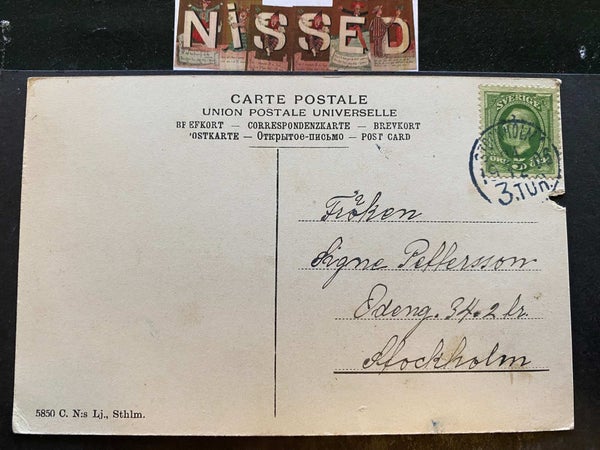 NiSSED
CARTE POSTALE
UNION POSTALE UNIVERSELLE
BREFKORT — CORRESPONDENZKARTE — BREVKORT
POSTKARTE — Открытое-письмо — POST CARD
SVERIGE
5
3.TUR.
Fröken
Signe Pettersson
Edeng. 34. 2 br.
Stockholm
5850 C. N:s Lj., Sthlm.